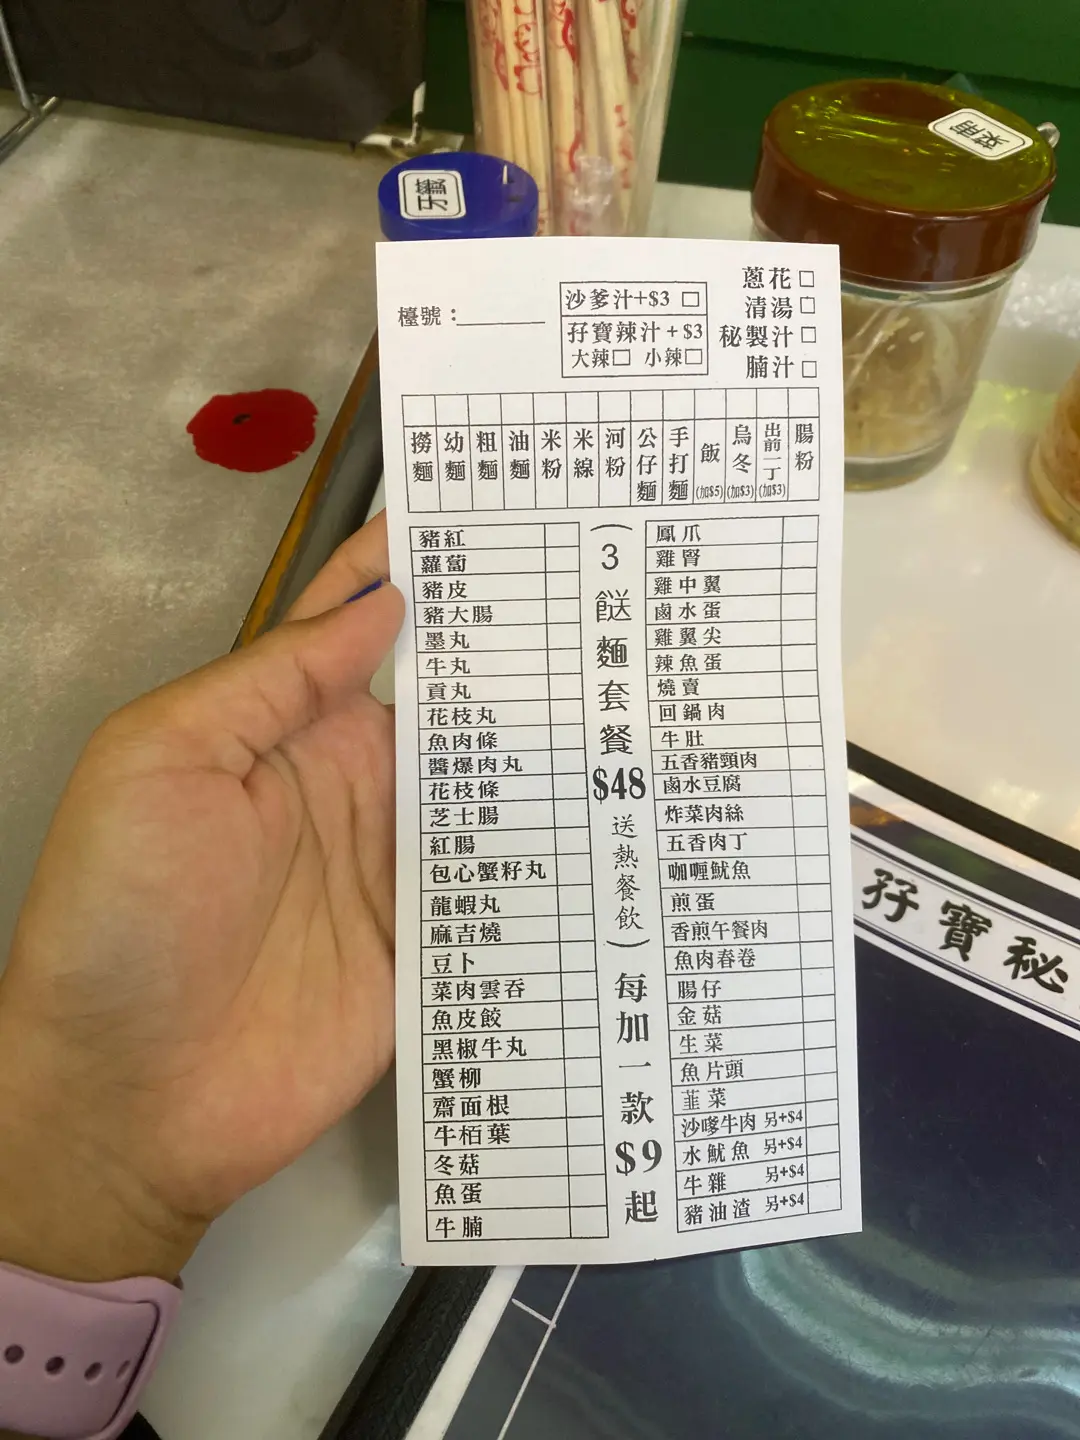 牙籤
菜甫
檯號：
沙爹汁+$3 □
孖寶辣汁+$3
大辣□ 小辣□
蔥花□
清湯□
秘製汁□
腩汁□
撈麵
幼麵
粗麵
油麵
米粉
米線
河粉
公仔麵
手打麵
飯(加$5)
烏冬(加$3)
出前一丁(加$3)
腸粉
豬紅
蘿蔔
豬皮
豬大腸
墨丸
牛丸
貢丸
花枝丸
魚肉條
醬爆肉丸
花枝條
芝士腸
紅腸
包心蟹籽丸
龍蝦丸
麻吉燒
豆卜
菜肉雲吞
魚皮餃
黑椒牛丸
蟹柳
齋面根
牛栢葉
冬菇
魚蛋
牛腩
（3餸麵套餐$48送熱餐飲）每加一款$9起
鳳爪
雞腎
雞中翼
鹵水蛋
雞翼尖
辣魚蛋
燒賣
回鍋肉
牛肚
五香豬頸肉
鹵水豆腐
炸菜肉絲
五香肉丁
咖喱魷魚
煎蛋
香煎午餐肉
魚肉春卷
腸仔
金菇
生菜
魚片頭
韮菜
沙嗲牛肉 另+$4
水魷魚 另+$4
牛雜 另+$4
豬油渣 另+$4
孖寶秘